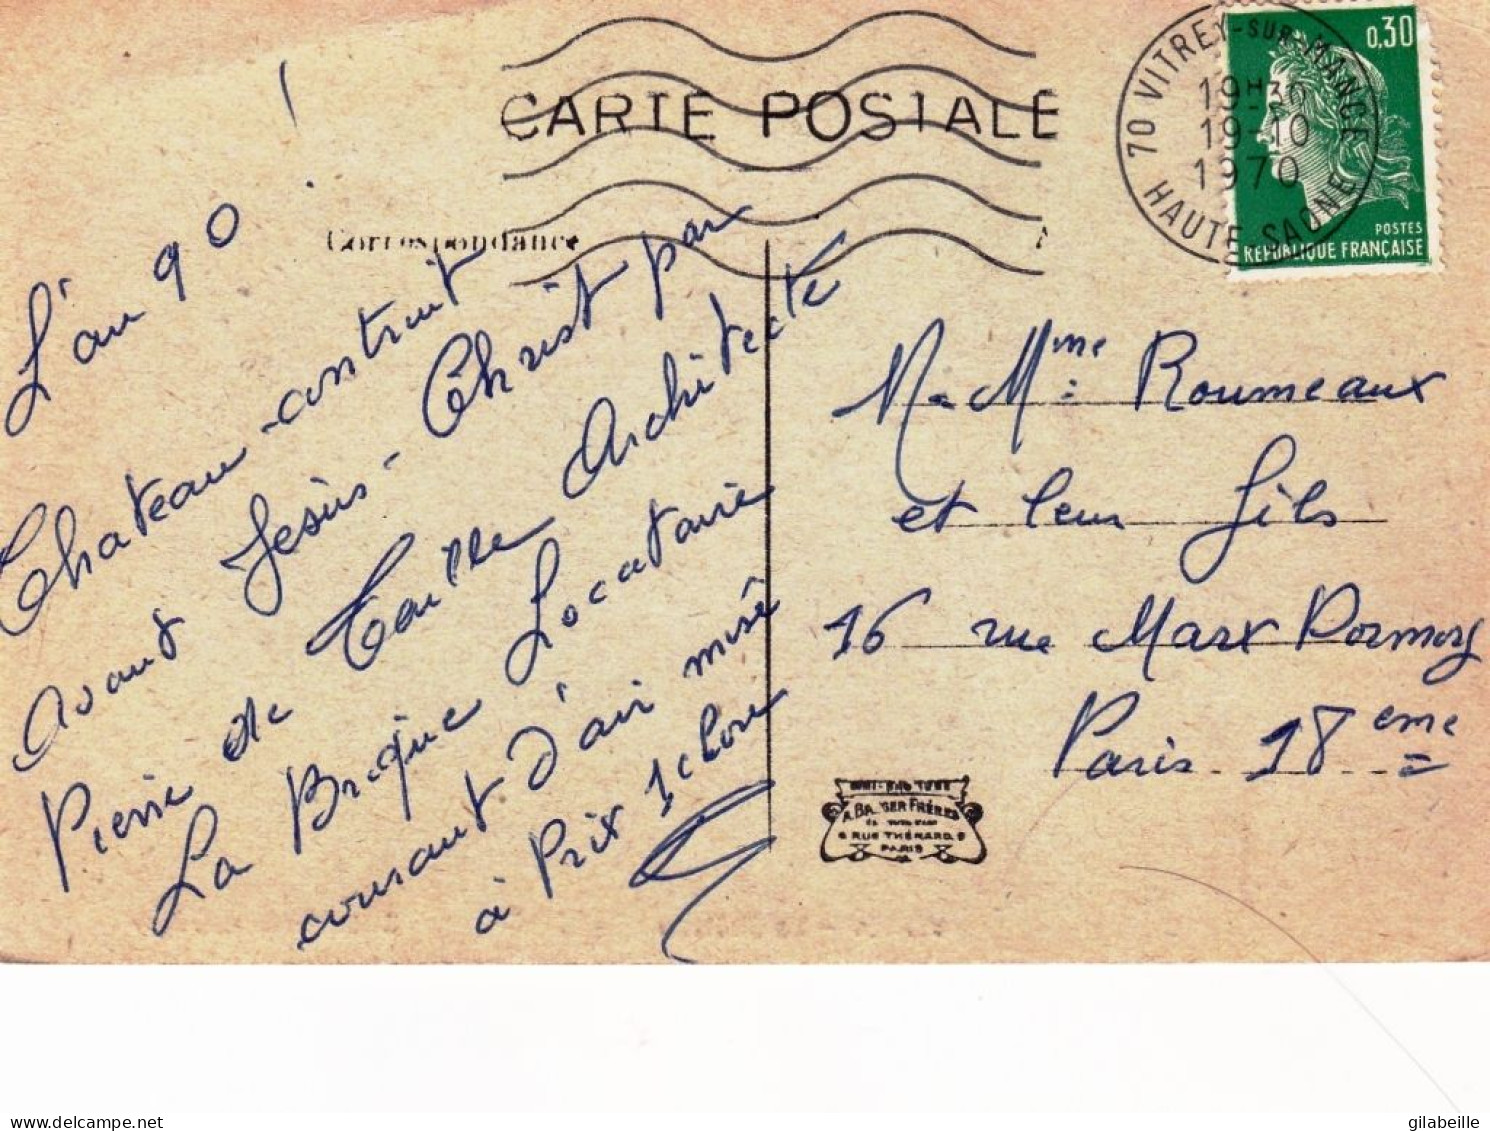 CARTE POSTALE
Correspondance
70 VITREY-SUR-MANCE
19H30
19-10
1970
HAUTE-SAONE
0,30
POSTES
REPUBLIQUE FRANÇAISE
L'an 90 !
Chateau construit
avant Jésus-Christ par
Pierre de Taille Architecte
La Brique Locataire
courant d'air misé
à Prix 1 clore
M. Mme Roumeaux
et leur fils
16 rue Marx Dormoy
Paris 18eme
FRÈRES
6 RUE THÉNARD. 9
PARIS
gilabeille